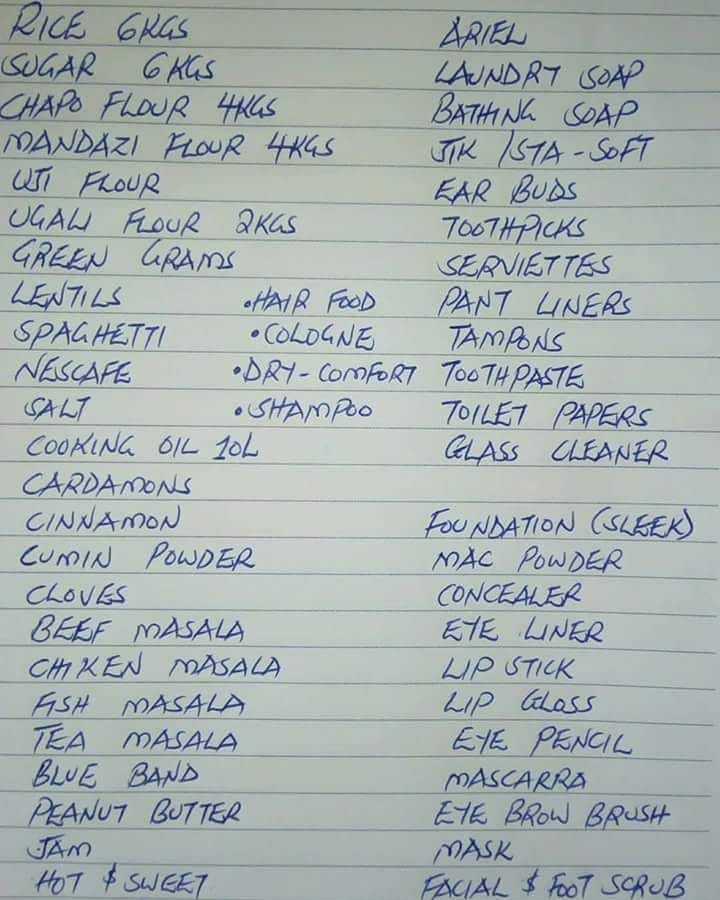 RICE 6KGS
SUGAR 6KGS
CHAPO FLOUR 4KGS
MANDAZI FLOUR 4KGS
UJI FLOUR
UGALI FLOUR 2KGS
GREEN GRAMS
LENTILS
SPAGHETTI
NESCAFE
SALT
COOKING OIL 10L
CARDAMONS
CINNAMON
CUMIN POWDER
CLOVES
BEEF MASALA
CHIKEN MASALA
FISH MASALA
TEA MASALA
BLUE BAND
PEANUT BUTTER
JAM
HOT & SWEET
•HAIR FOOD
•COLOGNE
•DRY-COMFORT
•SHAMPOO
ARIEL
LAUNDRY SOAP
BATHING SOAP
JIK /STA-SOFT
EAR BUDS
TOOTHPICKS
SERVIETTES
PANT LINERS
TAMPONS
TOOTHPASTE
TOILET PAPERS
GLASS CLEANER
FOUNDATION (SLEEK)
MAC POWDER
CONCEALER
EYE LINER
LIP STICK
LIP GLOSS
EYE PENCIL
MASCARRA
EYE BROW BRUSH
MASK
FACIAL & FOOT SCRUB